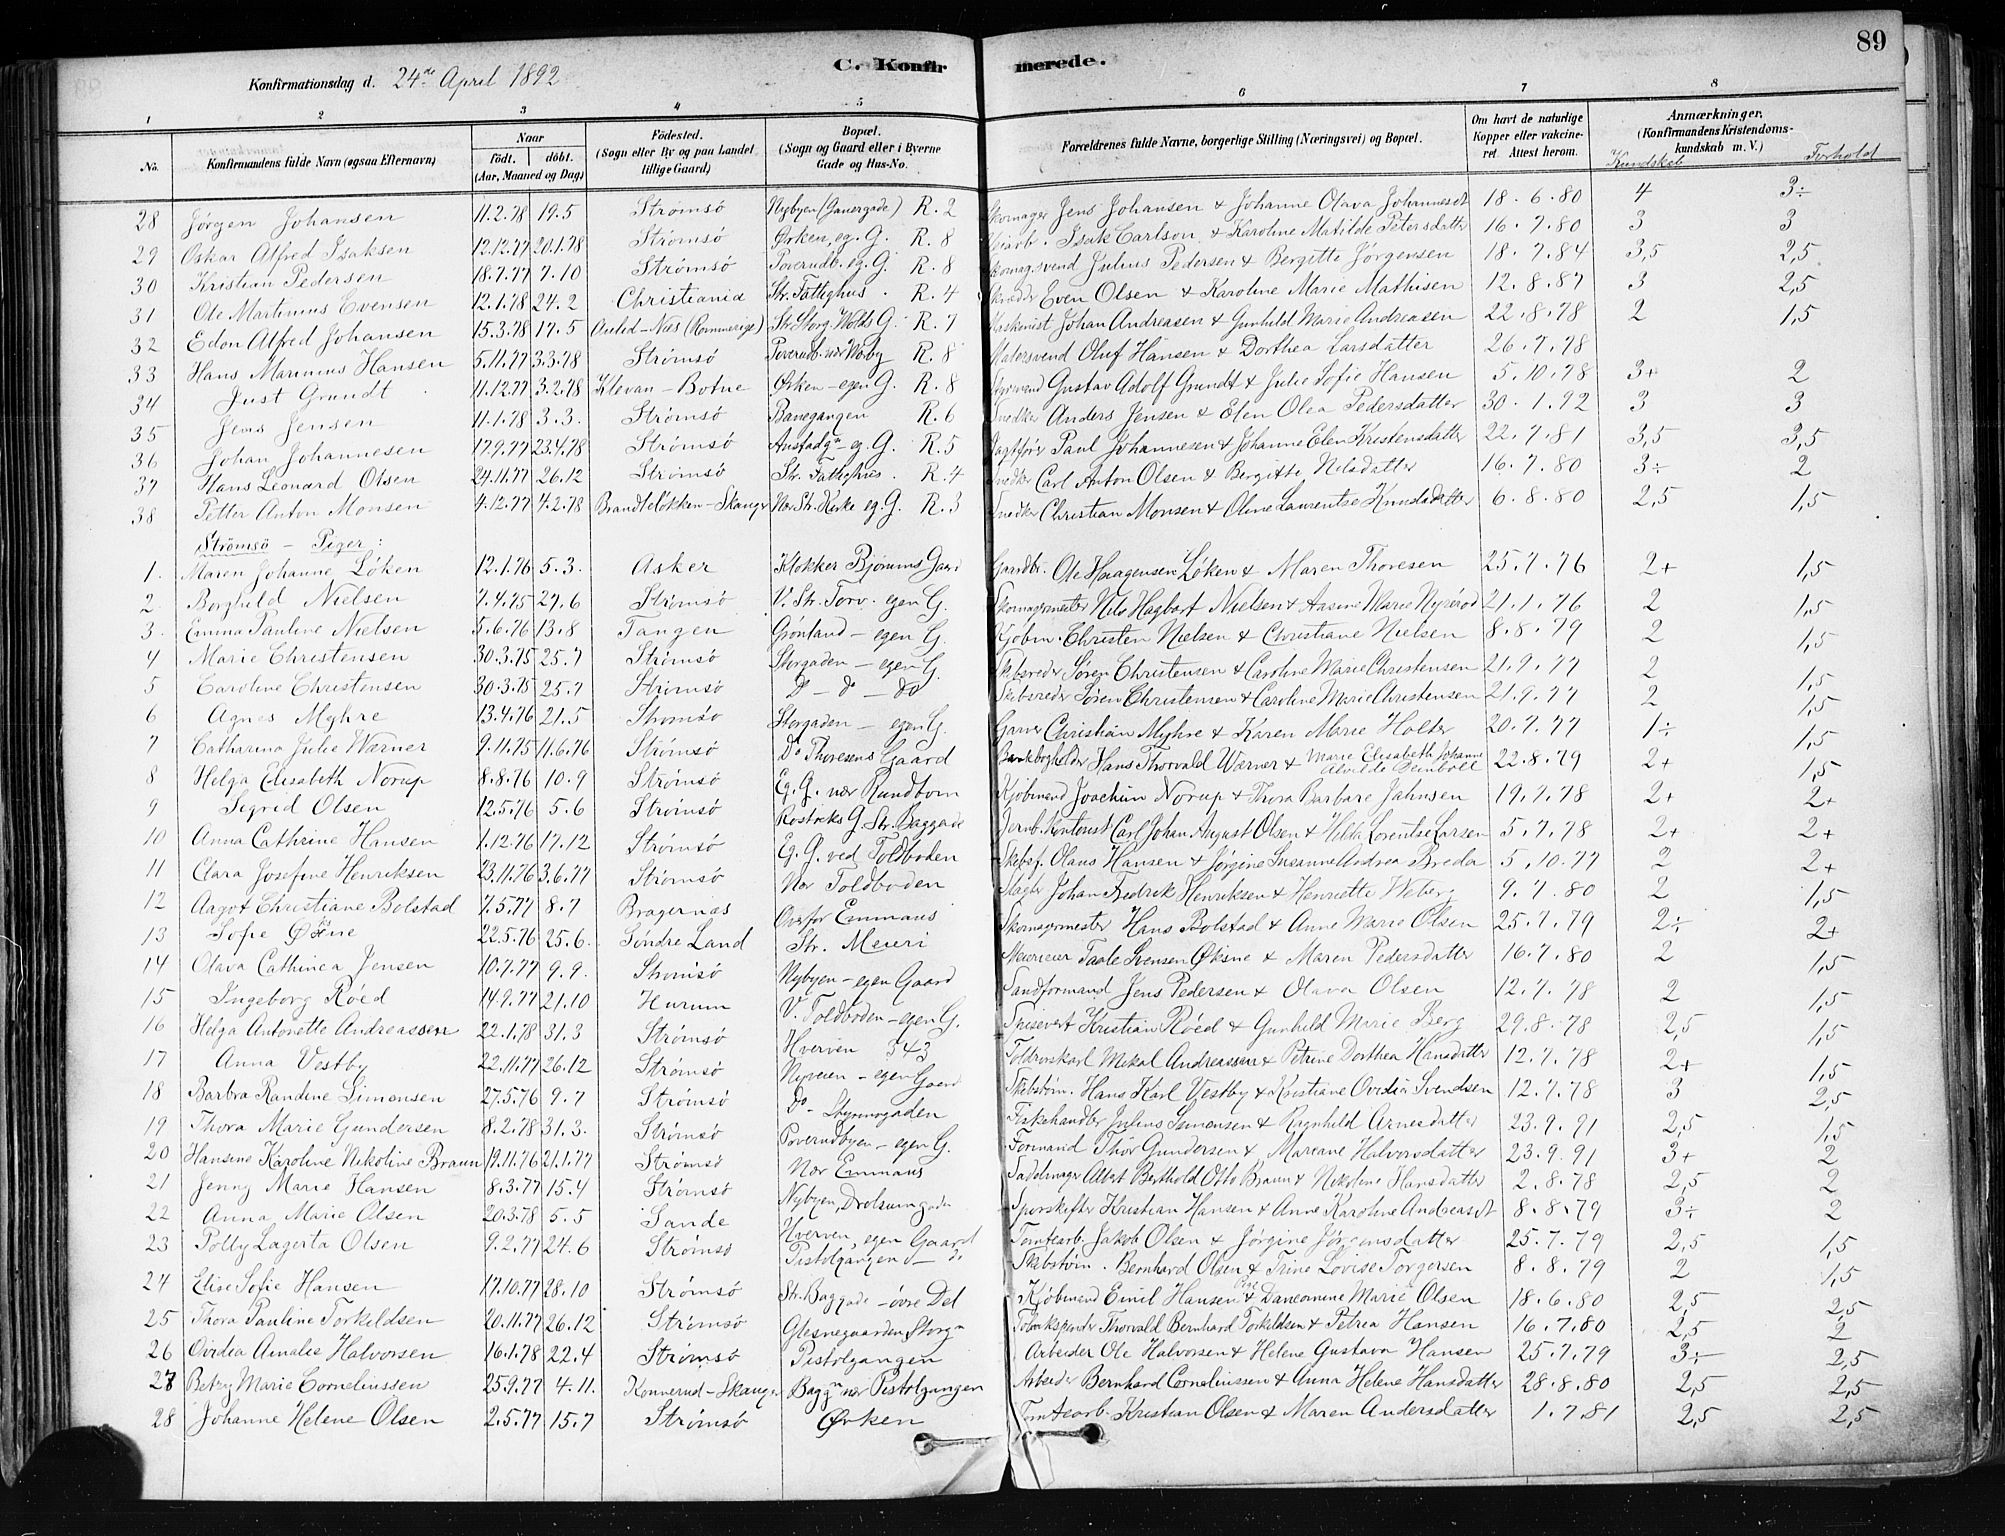 89
Konfirmationsdag d. 24de April 1892
C. Konfirmerede.
1 2 3 4 5 6 7 8
No. Konfirmandens fulde Navn (ogsaa Efternavn) Naar född. döbt. (Aar, Maaned og Dag) Födested. (Sogn eller By og paa Landet tillige Gaard) Bopæl. (Sogn og Gaard eller i Byerne Gade og Hus-No. Forældrenes fulde Navne, borgerlige Stilling (Næringsvei) og Bopæl. Om havt de naturlige Kopper eller vakcineret. Attest herom. Anmærkninger. (Konfirmandens Kristendomskundskab m. V.) Kundskab Forhold
28 Jørgen Johansen 11.2.78 19.5 Strømsö Nybyen R. 2 Skomager Jens Johansen & Johanne Olava Johannesdt 18.6.80 4 3÷
29 Oskar Alfred Isaksen 12.12.77 20.1.78 Strømsö Ørken, eg. G. R. 8 Isak Carlson & Karoline Matilde Petersdatter 16.7.80 3 3
30 Kristian Pedersen 18.7.77 7.10 Strømsö Toverudb. eg. G. R. 8 Skomag.svend Julius Pedersen & Bergitte Jørgensen 18.7.84 3,5 2,5
31 Ole Martinius Evensen 12.1.78 24.2 Christiania Str. Fattighus. R. 4 Skrædder Even Olsen & Karoline Marie Mathisen 12.8.87 3 2,5
32 Edon Alfred Johansen 15.3.78 17.5 Næs (Rommerige) Str. Storg. Wolds G. R. 7 Maskinist Johan Andreasen & Gunhild Marie Andreasen 22.8.78 2 1,5
33 Hans Marinius Hansen 5.11.77 3.3.78 Strømsö Toverudb. R. 8 Malersvend Oluf Hansen & Dorthea Larsdatter 26.7.78
34 Just Grundt 11.12.77 3.2.78 Klevan - Botne Ørken - egen G. R. 8 Styrmand Gustav Adolf Grundt & Julie Sofie Hansen 5.10.78 3+ 2
35 Jens Jensen 11.1.78 3.3. Strømsö Banegangen R. 6 Snedker Anders Jensen & Elen Olea Pedersdatter 30.1.92 3 3
36 Johan Johannesen 17.9.77 23.4.78 Strømsö Austadgn eg. G. R. 5 Paul Johannesen & Johanne Elen Kristensdatter 22.7.81 3,5 3,5
37 Hans Leonard Olsen 24.11.77 26.12 Strømsö Str. Fattighus. R. 4 Snedker Carl Anton Olsen & Bergitte Nilsdatter 16.7.80 3÷ 2
38 Petter Anton Monsen 4.12.77 4.2.78 Skauger Nær Str. Kirke eg. G. R. 3 Snedker Christian Monsen & Oline Laurentse Knudsdatter 6.8.80 2,5 1,5
Strömsö - Piger:
1. Maren Johanne Løken 12.1.76 5.3. Asker Klokker Bjørums Gaard Gaardbr. Ole Haagensen Løken & Maren Thoresen 25.7.76 2+ 1,5
2. Borghild Nielsen 7.4.75 27.6 Strømsö V. Str. Torv - egen G. Skomagermester Nils Hagbart Nielsen & Aasine Marie Nyrørod 21.1.76 2 1,5
3. Emma Pauline Nielsen 5.6.76 13.8 Tangen Grønland - egen G. Kjøbm. Christen Nielsen & Christiane Nielsen 8.8.79 2 1,5
4 Marie Christensen 30.3.75 25.7 Strømsö Storgaden - egen G. Skibsreder Søren Christensen & Caroline Marie Christensen 21.9.77 2 1,5
5 Caroline Christensen 30.3.75 25.7 Strømsö Do - do - do Skibsreder Søren Christensen & Caroline Marie Christensen 21.9.77 2 1,5
6 Agnes Myhre 13.4.76 21.5 Strømsö Storgaden - egen G. Garver Christian Myhre & Karen Marie Holter 20.7.77 1÷ 1,5
7 Catharina Julie Warner 9.11.75 11.6.76 Strømsö Do Thoresens Gaard Bankbogholder Hans Thorvald Warner & Marie Elisabeth Johanne Alvilde Deinboll 22.8.79 2+ 1,5
8 Helga Elisabeth Norup 8.8.76 10.9 Strømsö Eg. G. nær Rundtom Kjøbmand Joachim Norup & Thora Barbare Jahnsen 19.7.78 2+ 2+
9 Sigrid Olsen 12.5.76 5.6 Strømsö Rostocks G. Str. Baggade Carl Johan August Olsen & Hilda Lorentse Larsen 5.7.78 2+ 2+
10 Anna Cathrine Hansen 1.12.76 17.12 Strømsö Eg. G. ved Toldboden Skibsf. Olaus Hansen & Jørgine Susanne Andrea Breda 5.10.77 2 2+
11 Clara Josefine Henriksen 23.11.76 3.6.77 Strømsö Nær Toldboden Slagter Johan Fredrik Henriksen & Henriette Weberg 9.7.80 2 1,5
12 Aagot Christiane Bolstad 7.5.77 8.7 Bragernæs Overfor Emmaus Skomagermester Hans Bolstad & Anne Marie Olsen 25.7.79 2÷ 2+
13 Sofie Øxne 22.5.76 25.6. Søndre Land Str. Meieri Meierieier Taale Svensen Øksne & Maren Pedersdatter 16.7.80 2 1,5
14 Olava Cathinca Jensen 10.7.77 9.9. Strømsö Nybyen - egen Gaard Sandformand Jens Pedersen & Olava Olsen 12.7.78 2 1,5
15 Ingeborg Röed 14.9.77 21.10 Hurum V. Toldboden - egen G. Spisevert Kristian Röed & Gunhild Marie Berg 29.8.78 2,5 1,5
16 Helga Antonette Andreassen 22.1.78 31.3 Strømsö Hverven 343 Toldrorskarl Mekal Andreassen & Petrine Dorthea Hansdatter 12.7.78 2+ 1,5
17 Anna Vestby 22.11.77 26.12 Strømsö Nyveien - egen Gaard Skibstøm. Hans Karl Vestby & Kristiane Ovidia Svendsen 12.7.78 3 2,5
18 Barbra Randine Simonsen 27.5.76 9.7 Strømsö Do - Fiskehandler Julius Simonsen & Ragnhild Arnesdatter 23.9.91 2,5 1,5
19 Thora Marie Gundersen 8.2.78 31.3. Strømsö Toverudbyen - egen G. Formand Thor Gundersen & Mariane Halvorsdatter 23.9.91 3+ 2
20 Hansine Karoline Nikoline Braun 19.11.76 21.1.77 Strømsö Nær Emmaus Sadelmager Albert Berthold Otto Braun & Nikoline Hansdatter 2.8.78 2,5 2
21 Jenny Marie Hansen 8.3.77 15.4 Strømsö Nybyen, Sporskifter Kristian Hansen & Anne Karoline Andreasdt 8.8.79 3÷ 2
22 Anna Marie Olsen 20.3.78 5.5 Sande Hverven, egen Gaard Tomtearb. Jakob Olsen & Jørgine Jørgensdatter 25.7.79 2,5 1,5
23 Polly Lagerta Olsen 9.2.77 24.6 Strømsö Pistolgangen d - do Skibstøm. Bernhard Olsen & Trine Lovise Torgersen 8.8.79 2 1,5
24 Elise Sofie Hansen 17.10.77 28.10 Strømsö Str. Baggade - øvre Del Kjøbmand Emil Hansen & Daneomine Marie Olsen 18.6.80 2,5 2,5
25 Thora Pauline Torkildsen 20.11.77 26.12 Strømsö Glesnegaarden Storgn Thorvald Bernhard Torkildsen & Petrea Hansen 16.7.80 2,5 2
26 Ovidia Amalie Halvorsen 16.1.78 22.4 Strømsö Pistolgangen Arbeider Ole Halvorsen & Helene Gustava Hansen 25.7.79 3÷ 2,5
27 Betzy Marie Corneliussen 25.9.77 4.11. Konnerud - Skauger Baggn nær Pistolgangen Arbeider Bernhard Corneliussen & Anna Helene Hansdatter 28.8.80 2,5 2,5
28 Johanne Helene Olsen 2.5.77 15.7 Strømsö Ørken Tomtearb. Kristian Olsen & Maren Andersdatter 1.7.81 2,5 2,5